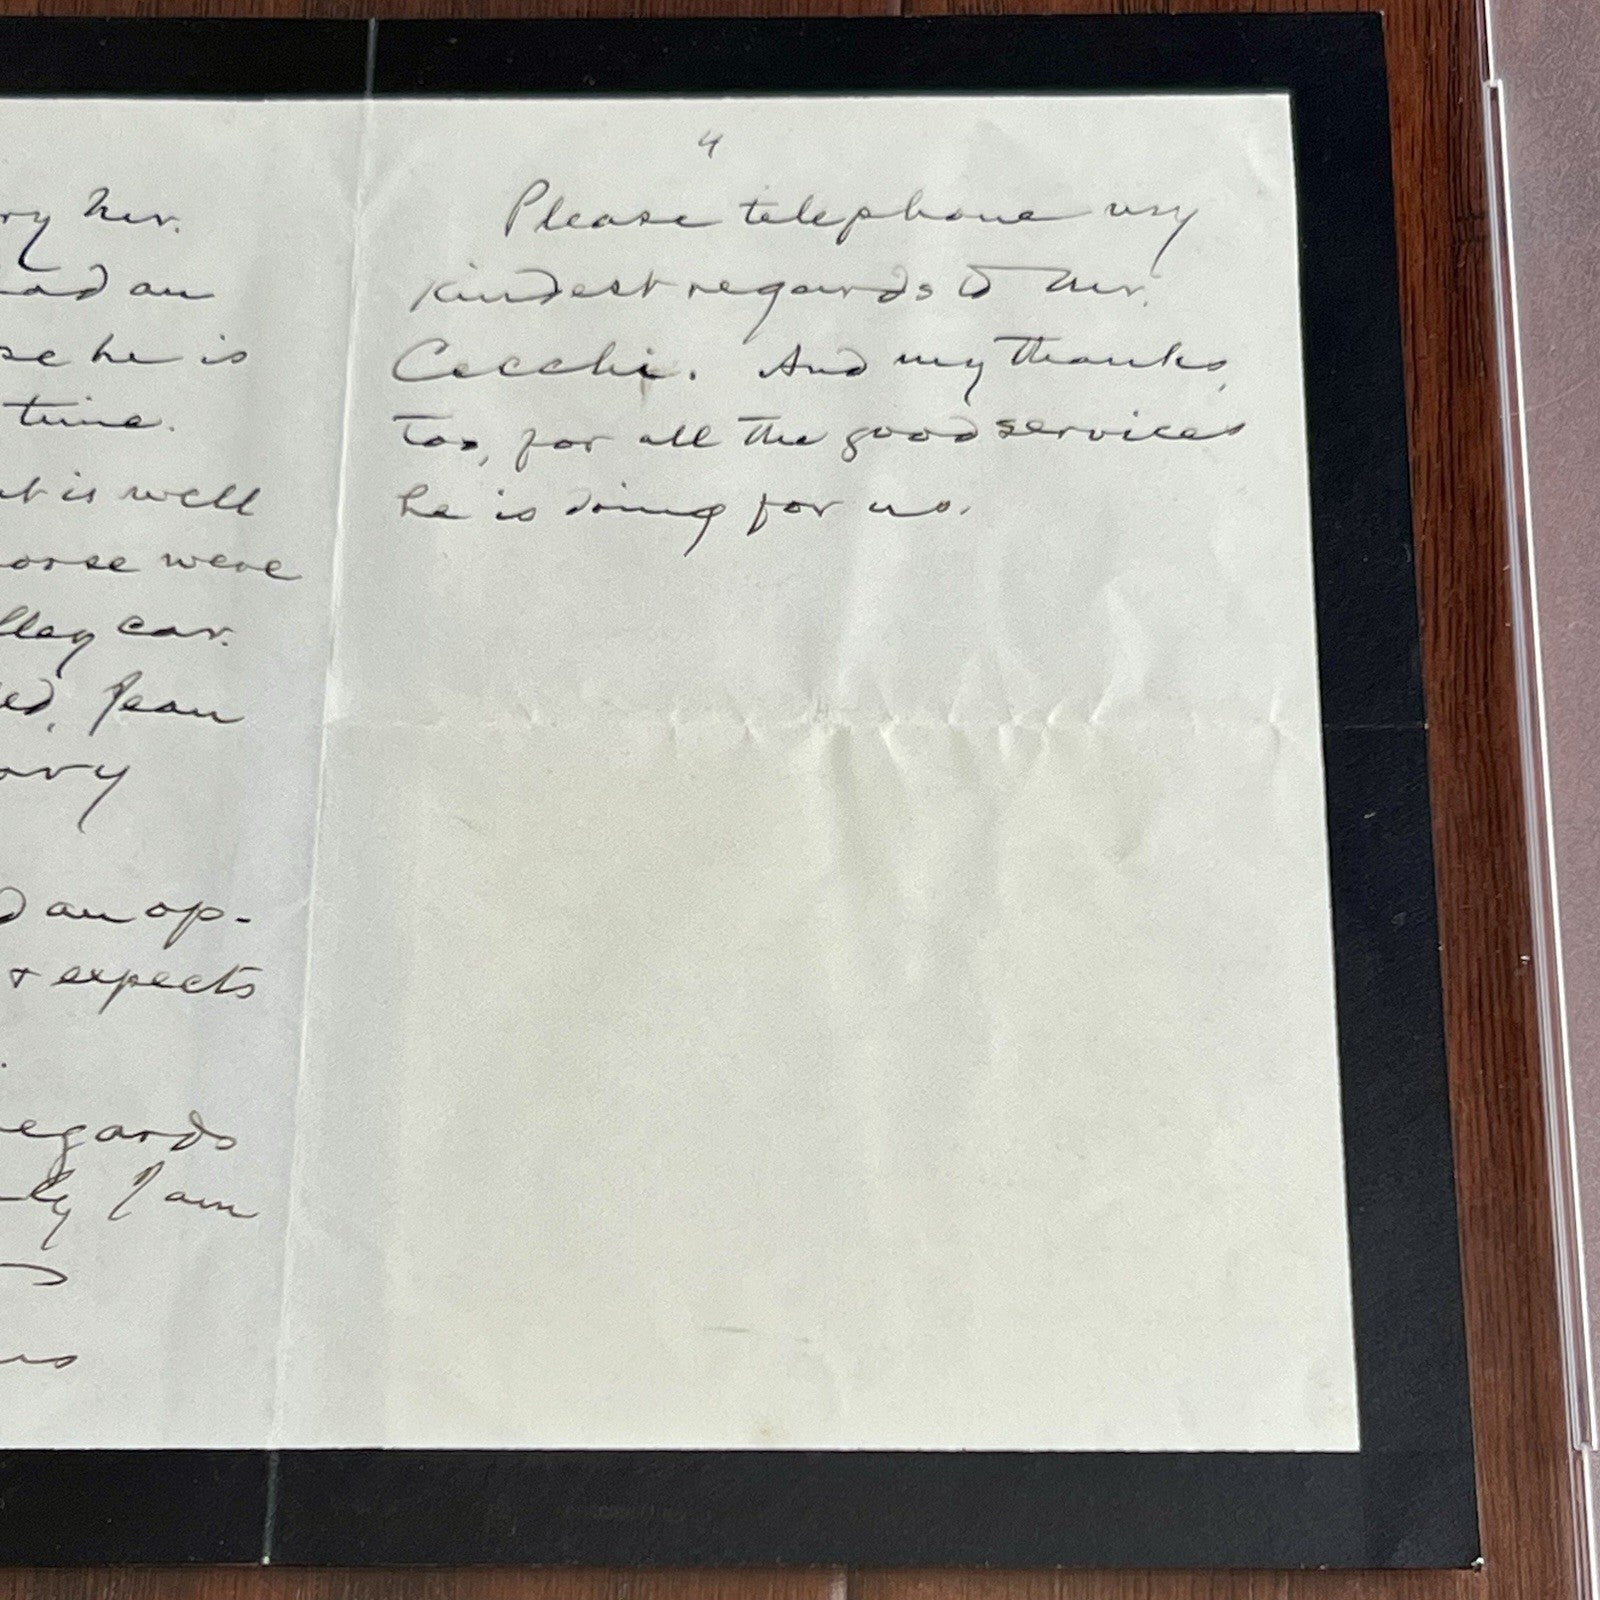 ry her.
ad an
se he is
time.
t is well
orse were
lley car.
ed, Jean
ovy
d an op-
& expects
regards
ly I am
4
Please telephone my
kindest regards to Mr.
Cecchi. And my thanks,
too, for all the good services
he is doing for us.